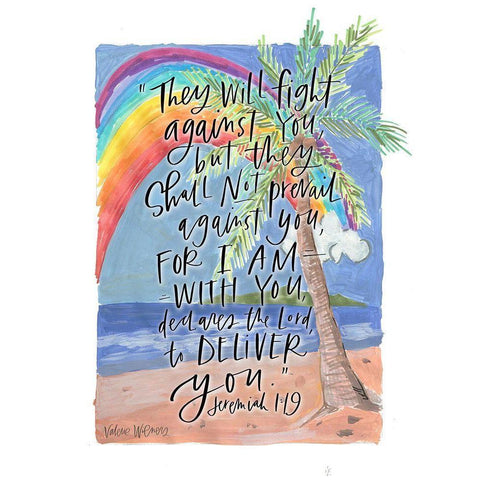 "They Will fight
against You,
but they
Shall Not prevail
against you,
FOR I AM
WITH YOU,
declares the Lord,
to DELIVER
you."
Jeremiah 1:19